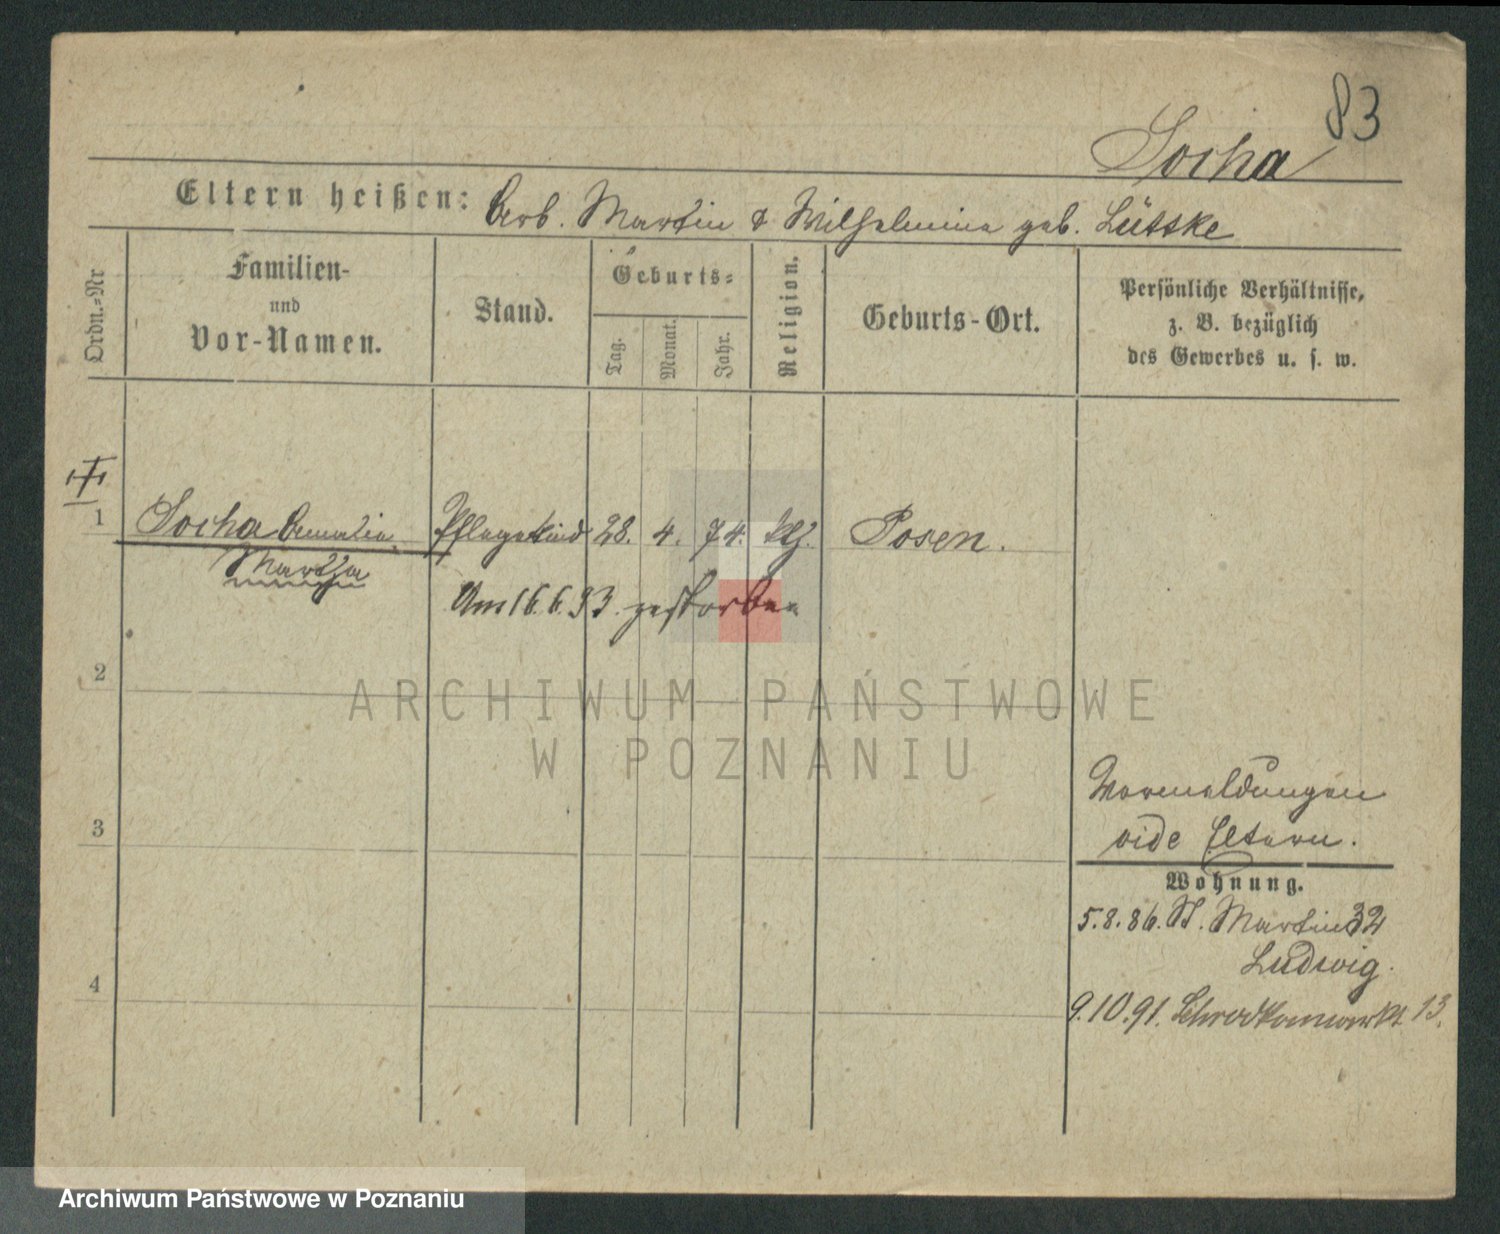 83
Socha
Eltern heißen: Arb. Martin & Wilhelmine geb. Lüttke
Ordn.-Nr
Familien-
und
Vor-Namen.
Stand.
Geburts-
Tag.
Monat.
Jahr.
Religion.
Geburts-Ort.
Persönliche Verhältnisse,
z. B. bezüglich
des Gewerbes u. s. w.
1 Socha Amalie Pflegekind 28. 4. 74. ktl. Posen.
Martha
Am 16.6.93. gestorben
2
ARCHIWUM PAŃSTWOWE
W POZNANIU
Vormeldungen
3
vide Eltern.
Wohnung.
5.8.86. St. Martin 32
Ludwig.
4
9.10.91. Schrodkamarkt 13.
Archiwum Państwowe w Poznaniu